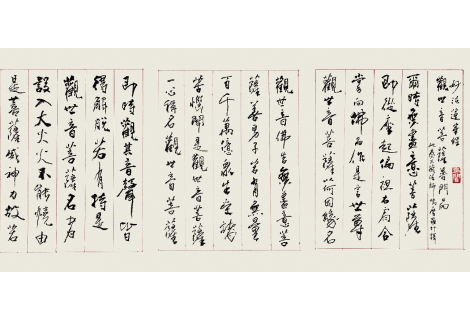 妙法蓮華經
觀世音菩薩普門品
姚秦三藏法師鳩摩羅什譯
爾時無盡意菩薩
即從座起偏袒右肩合
掌向佛而作是言世尊
觀世音菩薩何因緣名
觀世音佛告無盡意菩
薩善男子若有無量
百千萬億眾生受諸
苦惱聞是觀世音菩薩
一心稱名觀世音菩薩
即時觀其音聲皆
得解脫若有持是
觀世音菩薩名者
設入大火火不能燒由
是菩薩威神力故若